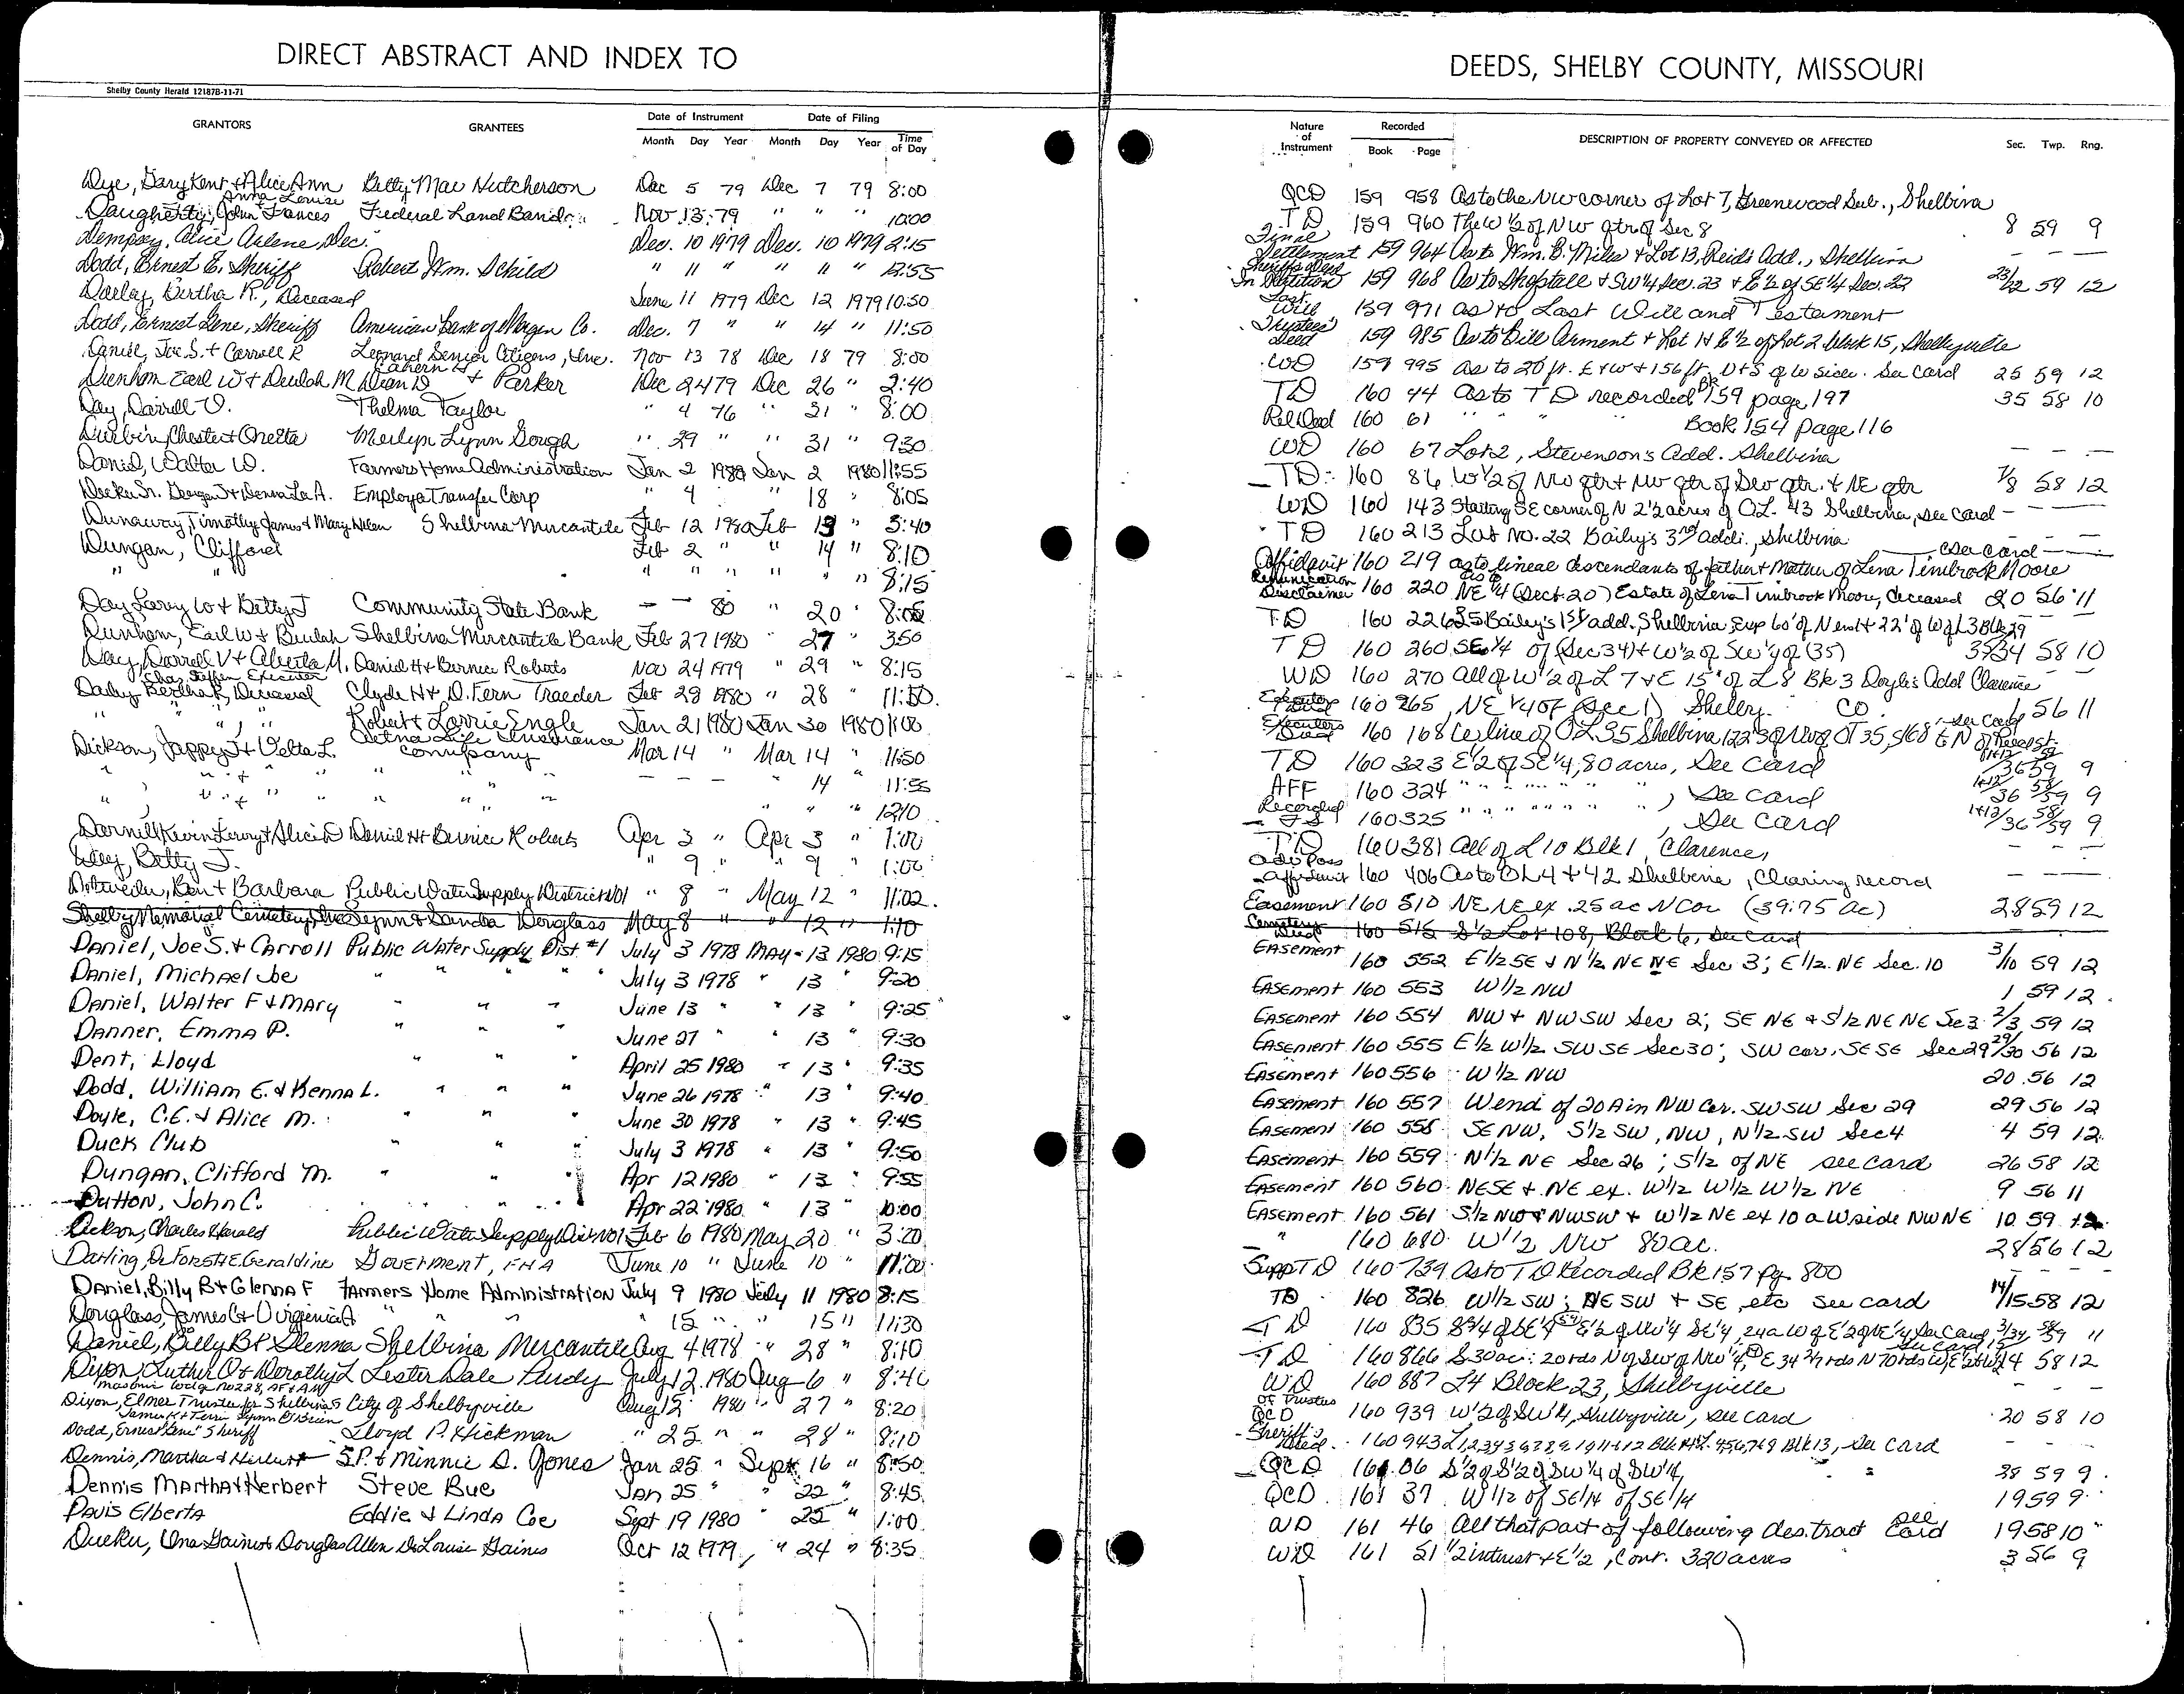 DIRECT ABSTRACT AND INDEX TO
Shelby County Herald 12187B-11-71
GRANTORS GRANTEES Date of Instrument Date of Filing
Month Day Year Month Day Year Time of Day
Dye, Gary Kent + Alice Ann Betty Mae Hutcherson Dec 5 79 Dec 7 79 8:00
Anna Louise
Daugherty, John + Frances Federal Land Band Nov. 13, 79 " " " 10:00
Dempsey, Alice Arlene, Dec. Dec. 10 1979 Dec. 10 1979 2:15
Dodd, Ernest E. Sheriff Robert Wm. Schild " 11 " " 11 " 12:55
Dailey, Bertha R., Deceased June 11 1979 Dec 12 1979 10:50
Dodd, Ernest Gene, Sheriff American Bank of Macon Co. Dec. 7 " " 14 " 11:50
Daniel, Joe S. + Carroll R Leonard Senior Citizens, Inc. Nov 13 78 Dec 18 79 8:00
Dunham Earl W + Beulah M Dean D + Parker Dec 24 79 Dec 26 " 2:40
Day, Darrell V. Thelma Taylor " 4 76 " 31 " 8:00
Durbin, Chester + Oneta Merlyn Lynn Gough " 29 " " 31 " 9:30
Daniel, Walter W. Farmers Home Administration Jan 2 1980 Jan 2 1980 11:55
Employe Transfer Corp " 4 " 18 " 8:05
Dunaway, Timothy James + Mary Helen Shelbina Mercantile Feb 12 1980 Feb 13 " 3:40
Dungan, Clifford Feb 2 " " 14 " 8:10
" " " " " " " " 8:15
Day Larry W + Betty J Community State Bank — — 80 " 20 " 8:05
Dunham, Earl W + Beulah Shelbina Mercantile Bank Feb 27 1980 " 27 " 3:50
Day, Darrell V + Alberta M. Daniel H + Bernice Roberts Nov 24 1979 " 29 " 8:15
Executor
Daily Bertha R, Deceased Clyde H + D. Fern Traeder Feb 28 1980 " 28 " 11:50
" " " " Robert + Lorrie Engle Jan 21 1980 Jan 30 1980 11:00
Aetna Life Insurance
Dickson, Jappy J + Velta L. company Mar 14 " Mar 14 " 11:50
" " + " " " " " — — — 14 " 11:55
" " + " " " " " " " " 12:10
Darnell Kevin Leroy + Alicia D Daniel H + Bernice Roberts Apr 3 " Apr 3 " 1:00
Betty J. " 9 " " 9 " 1:00
Ben + Barbara Public Water Supply District No1 " 8 " May 12 " 11:02
Shelby Memorial Cemetery, Inc Lynn + Sandra Douglass May 8 " " 12 " 1:10
Daniel, Joe S. + Carroll Public Water Supply Dist. #1 July 3 1978 May 13 1980 9:15
Daniel, Michael Joe " " " " July 3 1978 " 13 " 9:20
Daniel, Walter F + Mary " " " June 13 " " 13 " 9:25
Danner, Emma P. " " " June 27 " " 13 " 9:30
Dent, Lloyd " " " April 25 1980 " 13 " 9:35
Dodd, William E. & Kenna L. " " " June 26 1978 " 13 " 9:40
Doyle, C.E. & Alice M. " " " June 30 1978 " 13 " 9:45
Duck Club " " " July 3 1978 " 13 " 9:50
Dungan, Clifford M. " " " Apr 12 1980 " 13 " 9:55
Dutton, John C. " " " Apr 22 1980 " 13 " 10:00
Dickson, Charles Harald Public Water Supply Dist No1 Feb 6 1980 May 20 " 3:20
Darling, DeForest + E. Geraldine Goverment, FHA June 10 " June 10 " 11:00
Daniel, Billy B + Glenna F Farmers Home Administration July 9 1980 July 11 1980 8:15
Douglass, James C + Virginia A " " " 15 " " 15 " 11:30
Daniel, Billy B + Glenna Shelbina Mercantile Aug 4 1978 " 28 " 8:10
Dixon, Luther O + Dorothy L Lester Dale Purdy July 12 1980 Aug 6 " 8:40
Masonic Lodge No 228, AF + AM
Dixon, Elmer Trustee for Shelbina City of Shelbyville Aug 12 1980 " 27 " 8:20
James K + Terri Lynn O'Brien
Dodd, Ernest "Gene" Sheriff Lloyd P. Hickman " 25 " " 28 " 8:10
Dennis, Martha & Herbert S.P. + Minnie D. Jones Jan 25 " Sept 16 " 8:50
Dennis Martha + Herbert Steve Bue Jan 25 " " 22 " 8:45
Davis Elberta Eddie & Linda Coe Sept 19 1980 " 25 " 1:00
Oct 12 1979 " 24 " 8:35
DEEDS, SHELBY COUNTY, MISSOURI
Nature of Instrument Recorded Book Page DESCRIPTION OF PROPERTY CONVEYED OR AFFECTED Sec. Twp. Rng.
QCD 159 958 As to the NW corner of Lot 7, Greenwood Sub., Shelbina
TD 159 960 The W 1/2 of NW qtr of Sec 8 8 59 9
Final Settlement 159 964 As to Wm. B. Miles + Lot 13, Reid's Add., Shelbina — — —
Sheriff's Deed In Partition 159 968 As to + SW 1/4 Sec. 23 + E 1/2 of SE 1/4 Sec. 22 23/22 59 12
Last Will 159 971 as to Last Will and Testament
Trustees Deed 159 985 As to Bill Arment + Lot 1 + E 1/2 of Lot 2 block 15, Shelbyville
WD 159 995 As to 20 ft. E + W + 156 ft. N + S of W side. See Card 25 59 12
TD 160 44 As to TD recorded Bk 159 page 197 35 58 10
Rel Deed 160 61 " " " Book 154 page 116
WD 160 67 Lot 2, Stevenson's Add. Shelbina — — —
TD 160 86 W 1/2 of NW qtr + NW qtr of SW qtr. + NE qtr 7/8 58 12
WD 160 143 Starting SE corner of N 2 1/2 acres of OL. 43 Shelbina, see Card — — —
TD 160 213 Lot No. 22 Bailey's 3rd addi., Shelbina — — —
See Card
Affidavit 160 219 as to lineal descendants of father + Mother of Lena Timbrook Moore
Renunciation Disclaimer 160 220 as to NE 1/4 (Sect. 20) Estate of Lena Timbrook Moore, deceased 20 56 11
TD 160 226 Bailey's 1st add., Shelbina, Exp 60' of N end + 22' of W of L3 Blk 29
TD 160 260 SE 1/4 of (Sec 34) + W 1/2 of SW 1/4 of (35) 35/34 58 10
WD 160 270 All of W 1/2 of L 7 + E 15' of L 8 Bk 3 Doyle's Add Clarence — —
Executor 160 265 NE 1/4 of (Sec 1) Shelby Co. 1 56 11
Executors Deed 160 168 OL 35 Shelbina See Card
TD 160 323 E 1/2 of SE 1/4, 80 acres, See Card 1+12/36 58/59 9
AFF 160 324 " " " " " , See card 1+12/36 58/59 9
Recorded 160 325 " " " " " " , See card 1+12/36 58/59 9
TD 160 381 All of L 10 Blk 1, Clarence — — —
Adv Poss Affidavit 160 406 As to OL 4 + 42 Shelbina, Clearing record — — —
Easement 160 510 NE NE ex .25 ac N Cor (39.75 Ac) 28 59 12
Cemetery Deed 160 515 S 1/2 Lot 108, Block 6, See Card
Easement 160 552 E 1/2 SE & N 1/2 NE NE Sec 3; E 1/2 NE Sec. 10 3/10 59 12
Easement 160 553 W 1/2 NW 1 59 12
Easement 160 554 NW + NW SW Sec 2; SE NE + S 1/2 NE NE Sec 3 2/3 59 12
Easement 160 555 E 1/2 W 1/2 SW SE Sec 30; SW cor. SE SE Sec 29 29/30 56 12
Easement 160 556 W 1/2 NW 20 56 12
Easement 160 557 W end of 20 A in NW Cor. SW SW Sec 29 29 56 12
Easement 160 558 SE NW, S 1/2 SW, NW, N 1/2 SW Sec 4 4 59 12
Easement 160 559 N 1/2 NE Sec 26; S 1/2 of NE see card 26 58 12
Easement 160 560 NE SE + NE ex. W 1/2 W 1/2 W 1/2 NE 9 56 11
Easement 160 561 S 1/2 NW + NW SW + W 1/2 NE ex 10 a W side NW NE 10 59 12
" 160 680 W 1/2 NW 80 ac. 28 56 12
Supp TD 160 739 As to TD Recorded Bk 157 Pg. 800 — — —
TD 160 826 W 1/2 SW; NE SW + SE, etc see card 14/15 58 12
TD 160 835 See Card 3/34 58/59 11
TD 160 866 S 30 ac: 58 12
WD 160 887 L4 Block 23, Shelbyville — — —
of Trustees QCD 160 939 W 1/2 of SW 1/4, Shelbyville, see card 20 58 10
Sheriff's Deed 160 943 See Card — — —
QCD 161 06 S 1/2 of S 1/2 of SW 1/4 of SW 1/4, 59 9
QCD 161 37 W 1/2 of SE 1/4 of SE 1/4 19 59 9
WD 161 46 All that part of following des. tract see Card 19 58 10
WD 161 51 1/2 interest + E 1/2, Cont. 320 acres 3 56 9